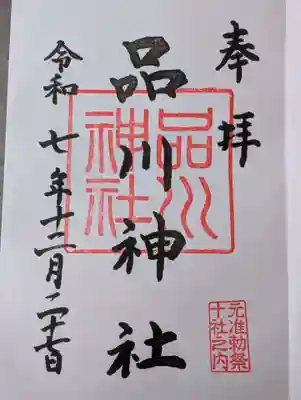 奉拝
品川神社
令和七年十二月二十七日
品川
神社
元准勅祭
十社之内